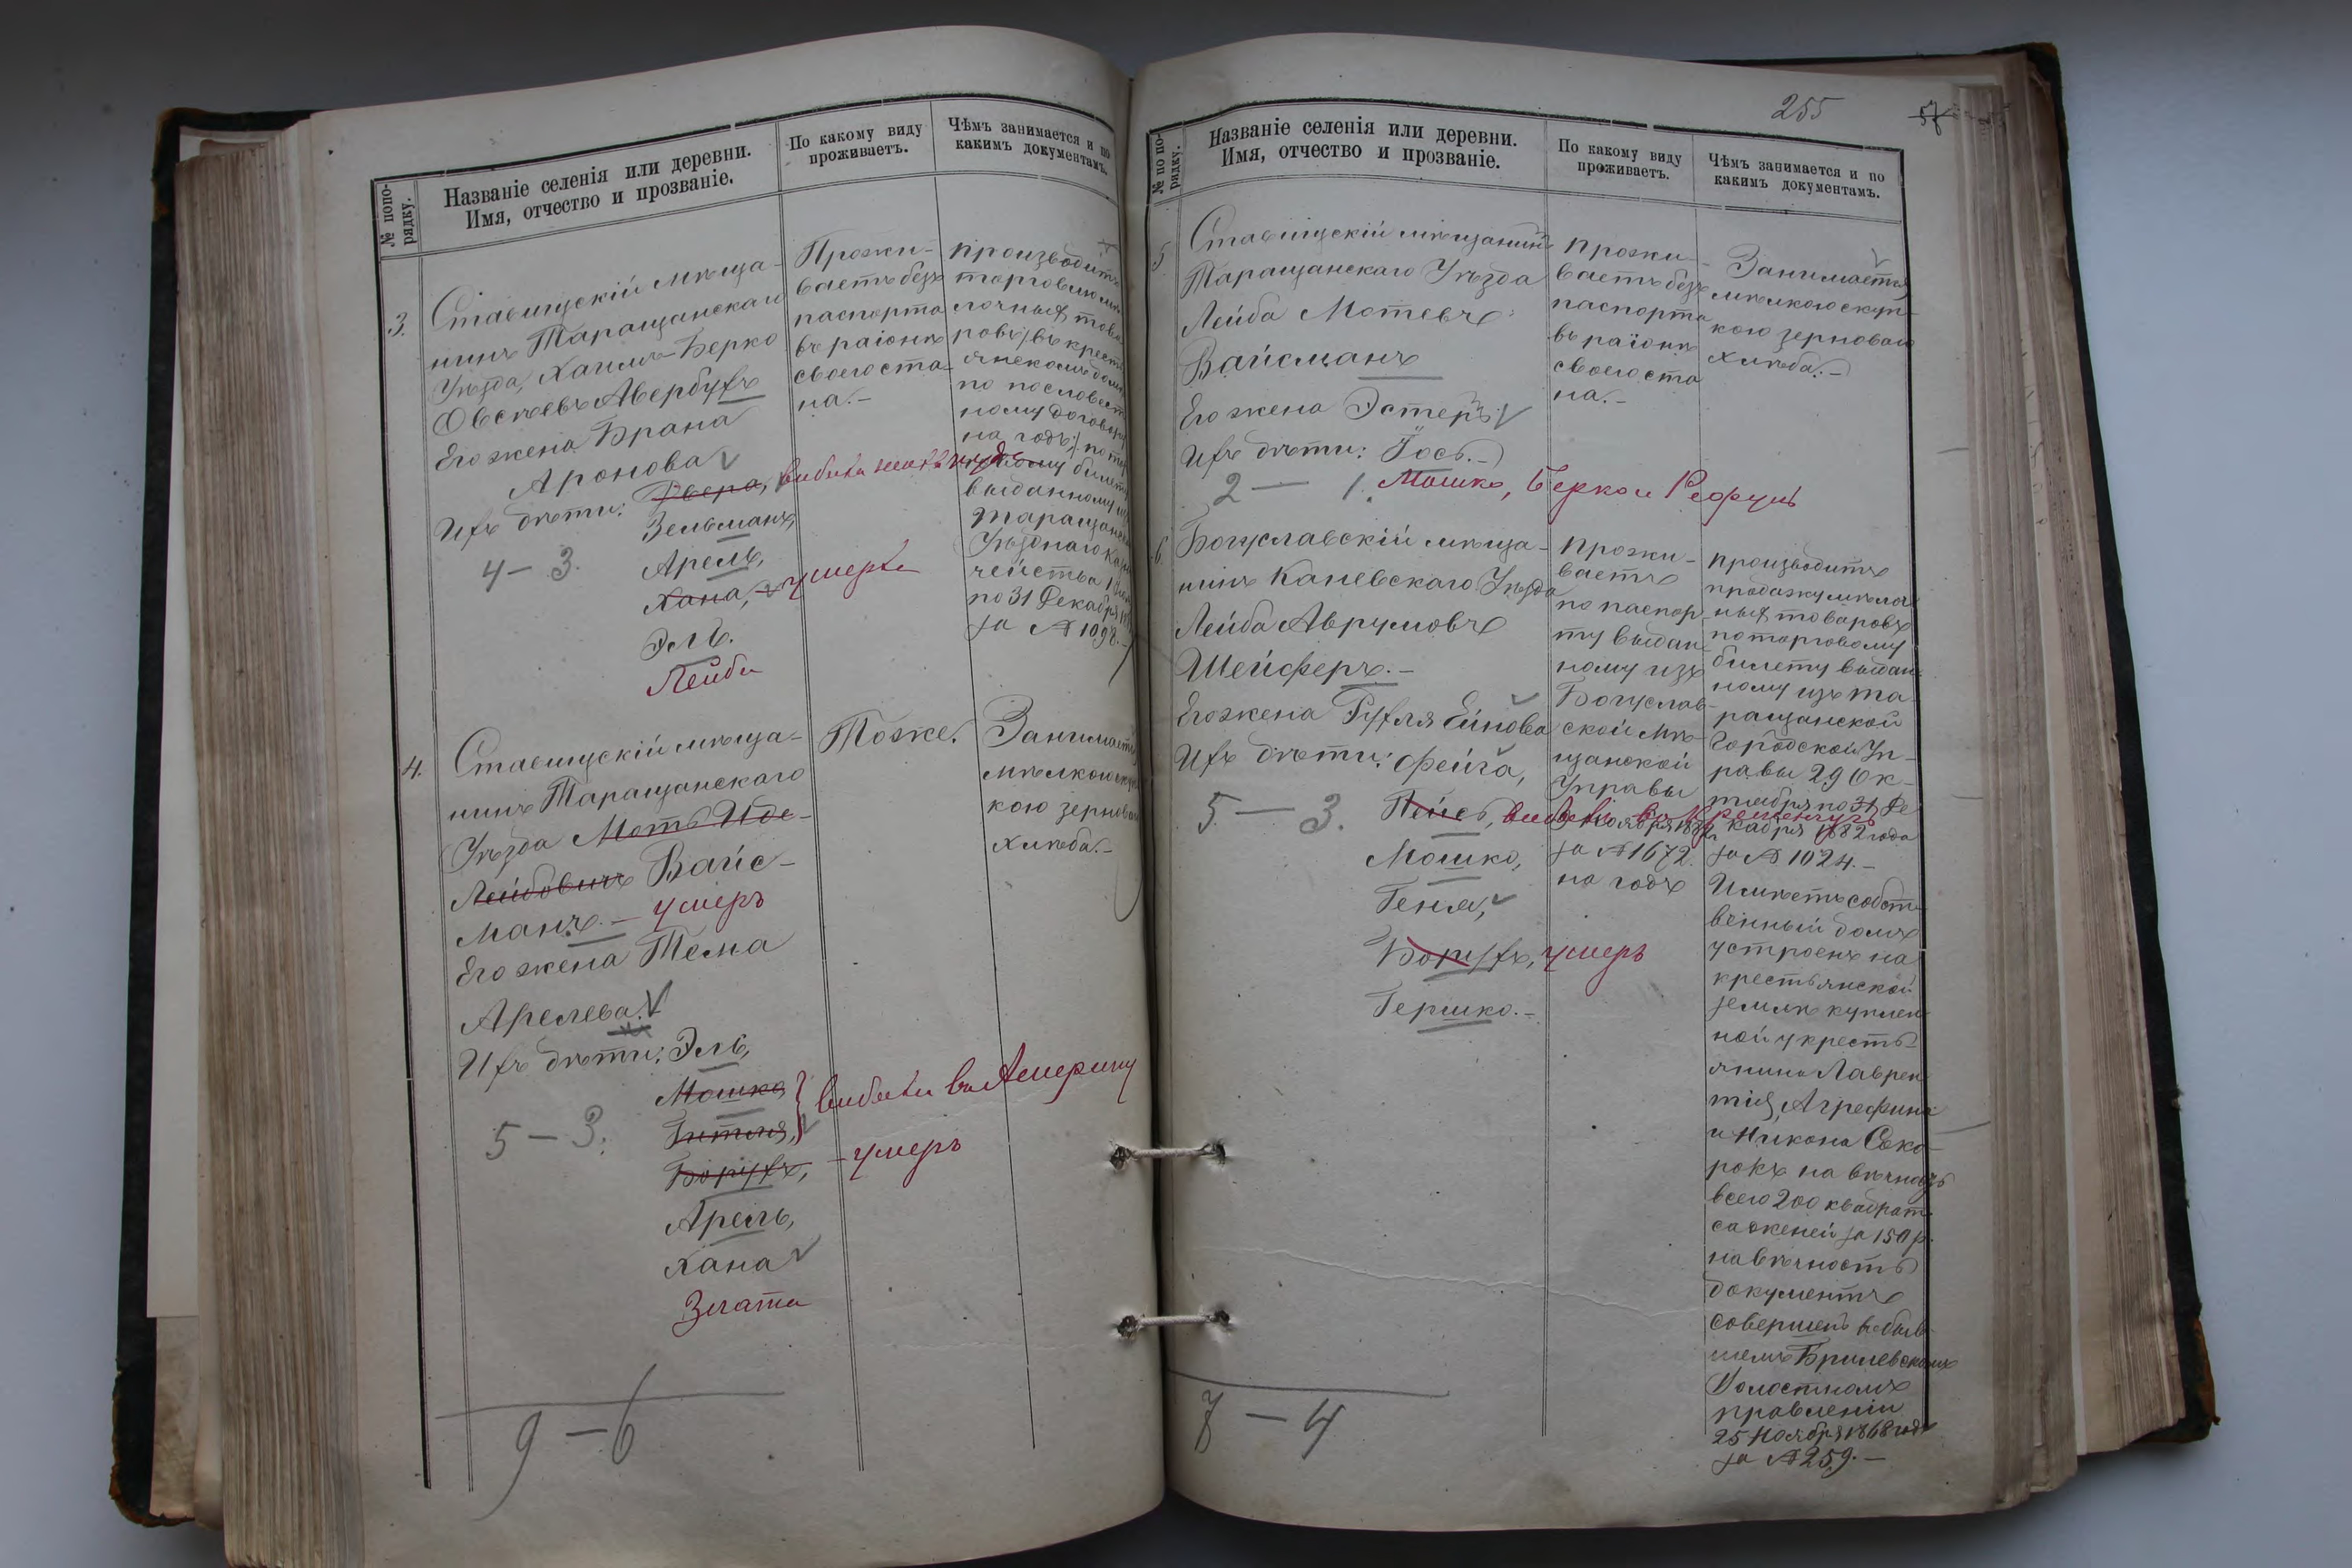 № попо-
рядку.
Названіе селенія или деревни.
Имя, отчество и прозваніе.
По какому виду
проживаетъ.
Чѣмъ занимается и по
какимъ документамъ.
3.
Ставищскій мѣща-
нинъ Таращанскаго
Уѣзда, Хаимъ-Берко
Овсѣевъ Авербухъ
Его жена Брана
Аронова
Ихъ дѣти:
Зельманъ,
Арель,
Хана, - умерла
Эль.
Лейби
4 - 3.
Прожи-
ваетъ безъ
паспорта
въ раіонѣ
своего ста-
на.-
производитъ
торговлю
лочныхъ това
ровъ въ крест
янскомъ домѣ
по
ному договору
на годъ
билету
выданному
Таращанск
Уѣзднаго Каз
чейства
по 31 Декабря
за № 1098.-
4.
Ставищскій мѣща-
нинъ Таращанскаго
Уѣзда Моть Иде-
Лейбовичъ Вайс-
манъ.- умеръ
Его жена Тема
Арелева.
Ихъ дѣти: Эль,
Мошко
Гитля,
выбыли въ Америку
Борухъ, - умеръ
Арель,
Хана
Злата
5 - 3.
Тоже.
Занимается
мѣлкою
кою зерновою
хлѣба.-
9 - 6
255
57
№ по по-
рядку.
Названіе селенія или деревни.
Имя, отчество и прозваніе.
По какому виду
проживаетъ.
Чѣмъ занимается и по
какимъ документамъ.
5
Ставищскій мѣщанинъ
Таращанскаго Уѣзда
Лейба Мотевъ
Вайсманъ
Его жена Эстеръ
Ихъ дѣти: Іось.-
2 - 1. Мошко, Берко и Рефуль
Прожи-
ваетъ безъ
паспорта
въ раіонѣ
своего ста
на.-
Занимается
мѣлкою скуп-
кою зерноваго
хлѣба.-
6.
Богуславскій мѣща-
нинъ Каневскаго Уѣзда
Лейба Аврумовъ
Шейферъ.-
Его жена Рухля Ейнова
Ихъ дѣти: Фейга,
Пейсъ, выбылъ въ Кременчугъ
Мошко,
Геня,
Борухъ, умеръ
Гершко.-
5 - 3.
Прожи-
ваетъ
по паспор
ту выдан
ному изъ
Богуслав-
ской Мѣ-
щанской
Управы
за № 1672.
на годъ
производитъ
продажу мѣлоч
ныхъ товаровъ
по торговому
билету выдан
ному изъ Та-
ращанской
Городской Уп-
равы 29 Ок-
тября по 31 Де
кабря 1882 года
за № 1024.-
Имѣетъ собст-
венный домъ
устроенъ на
крестьянской
землѣ куплен
ной у кресть-
янина Лаврен
тія, Агрефины
и Никона Соко-
рокъ на вѣчность
всего 200 квадрат.
саженей за 150 р.
на вѣчность
документъ
совершенъ въ быв-
шемъ Брилевскомъ
Волостномъ
правленіи
25 Ноября 1868 года
за № 259.-
7 - 4